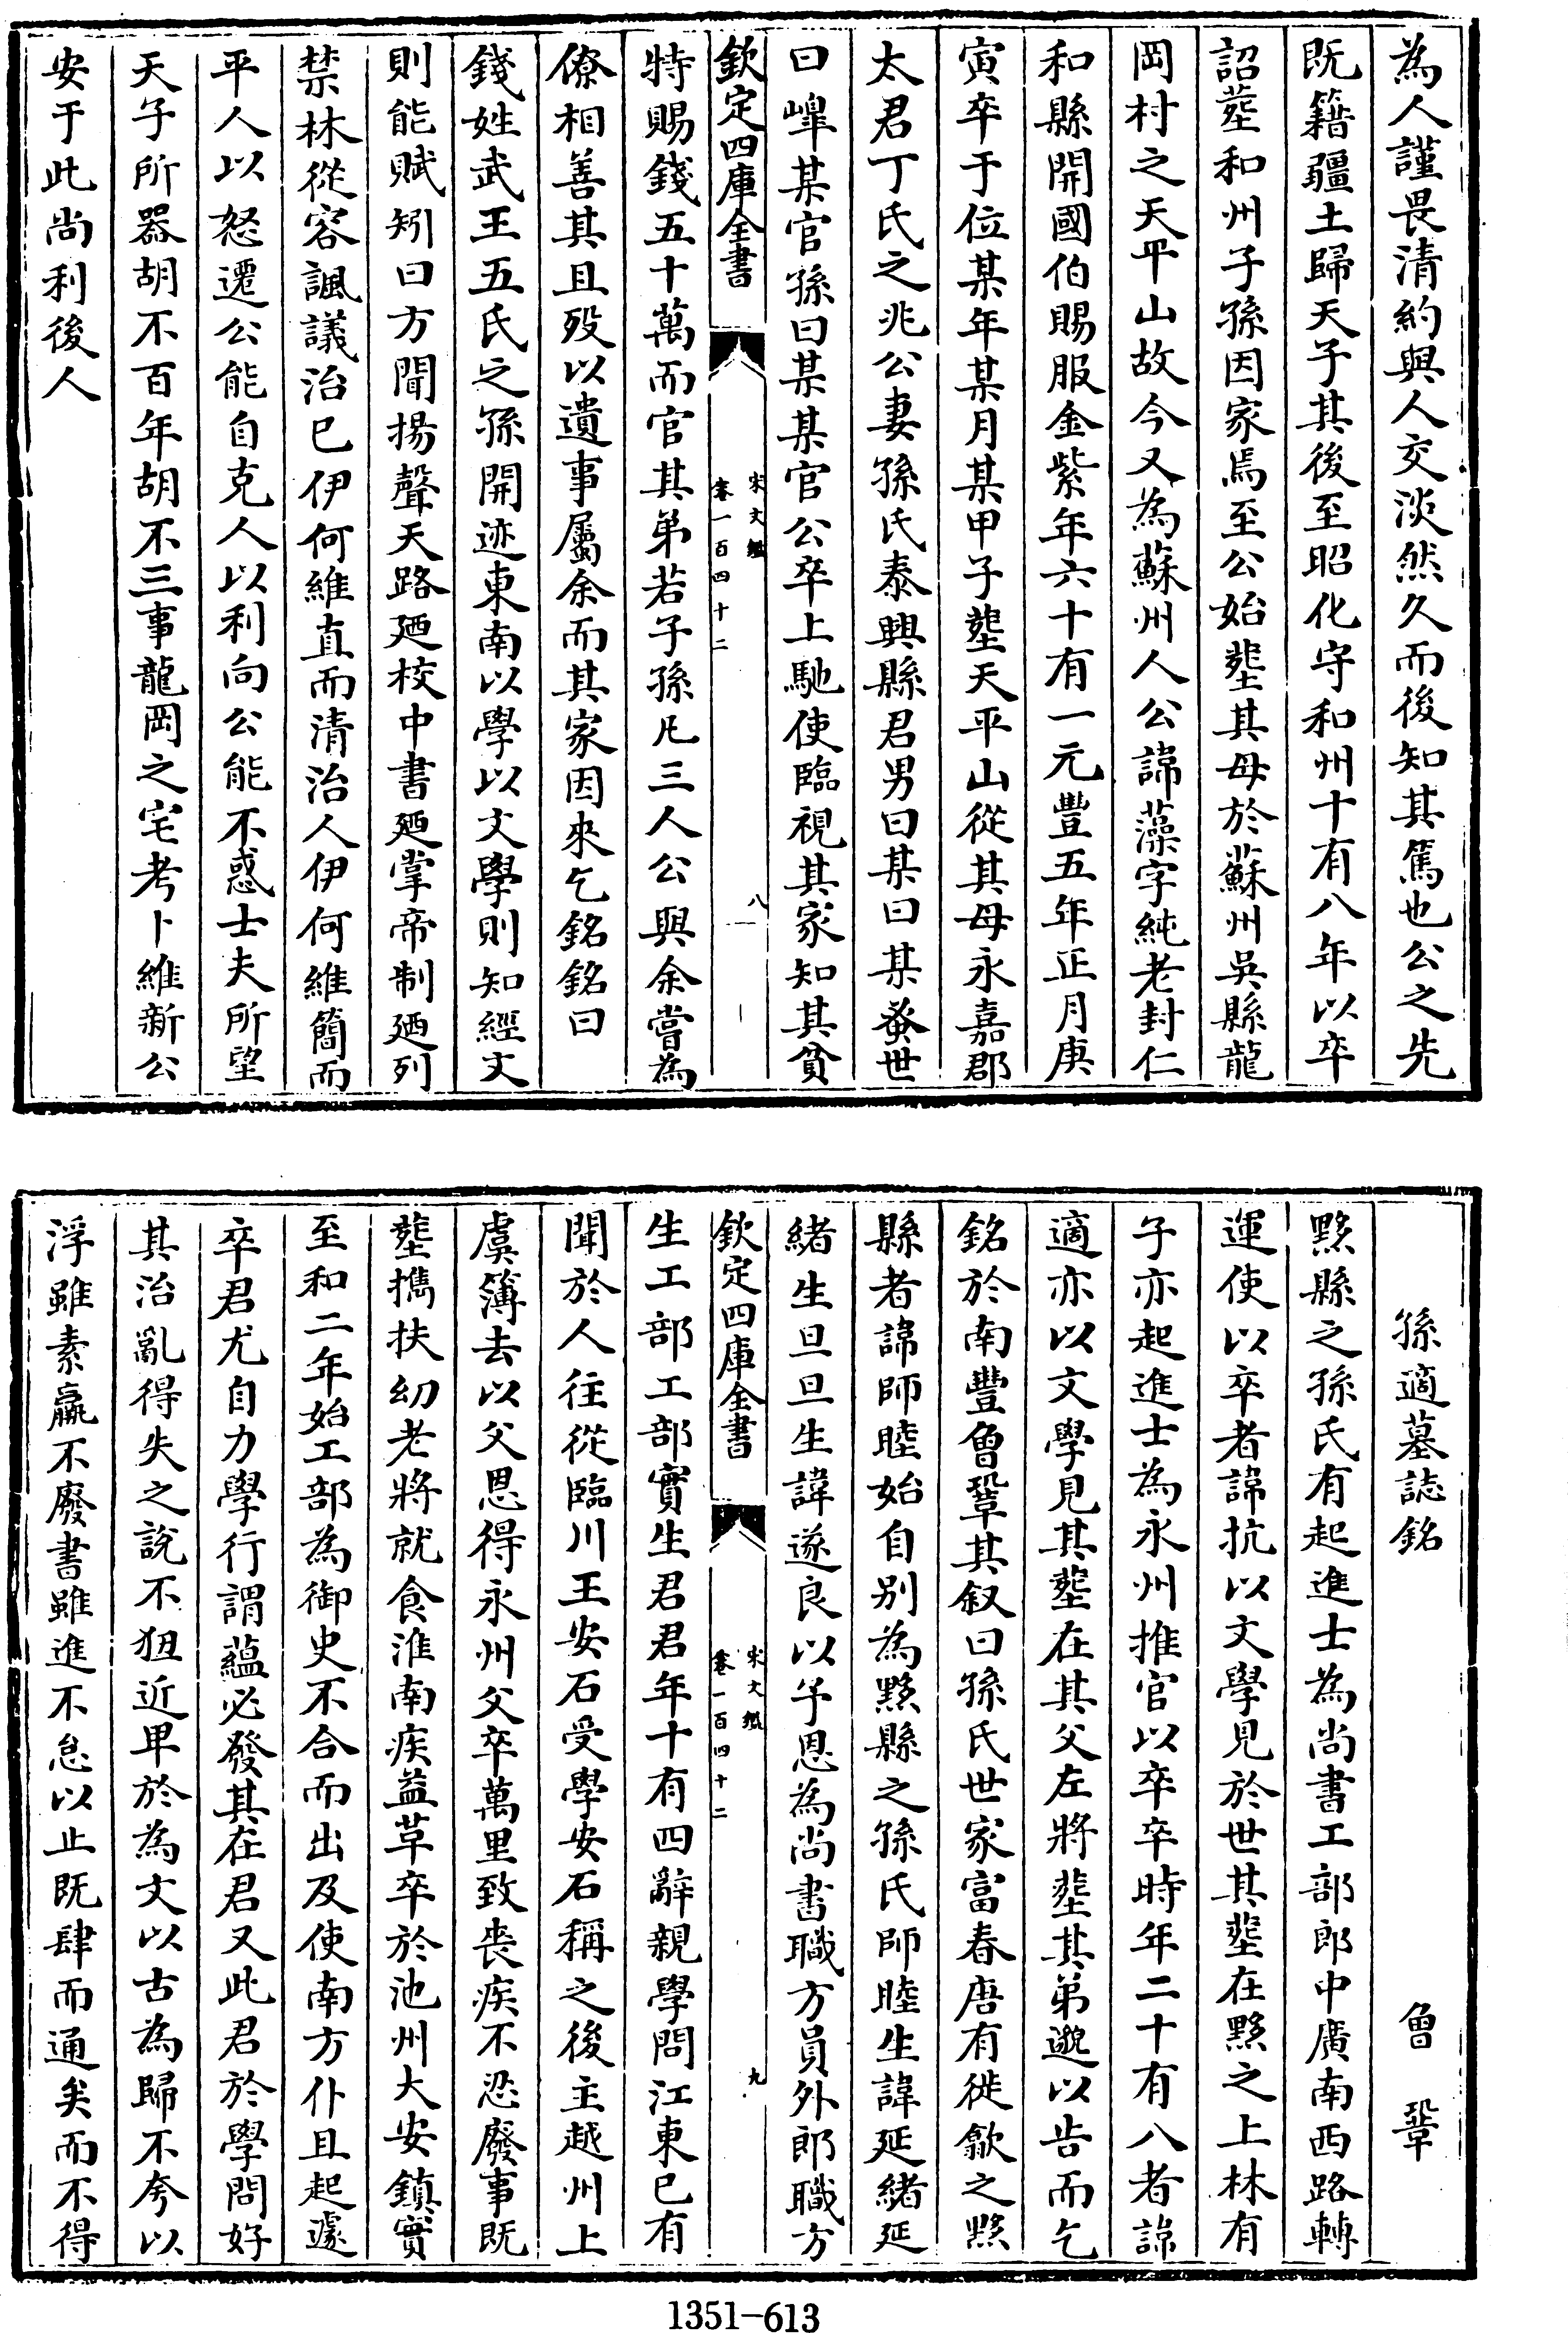 為人謹畏清約與人交淡然久而後知其篤也公之先
既籍疆土歸天子其後至昭化守和州十有八年以卒
詔塟和州子孫因家焉至公始塟其母於蘇州吳縣龍
岡村之天平山故今又為蘇州人公諱藻字純老封仁
和縣開國伯賜服金紫年六十有一元豐五年正月庚
寅卒于位某年某月某甲子塟天平山從其母永嘉郡
太君丁氏之兆公妻孫氏泰興縣君男曰某曰某蚤世
曰嶂某官孫曰某某官公卒上馳使臨視其家知其貧
欽定四庫全書
宋文鑑
卷一百四十二
八
特賜錢五十萬而官其弟若子孫凡三人公與余嘗為
僚相善其且歿以遺事屬余而其家因來乞銘銘曰
錢姓武王五氏之孫開迹東南以學以文學則知經文
則能賦矧曰方聞揚聲天路廼校中書廼掌帝制廼列
禁林從容諷議治已伊何維直而清治人伊何維簡而
平人以怒遷公能自克人以利向公能不惑士夫所望
天子所器胡不百年胡不三事龍岡之宅考卜維新公
安于此尚利後人
孫適墓誌銘
曾鞏
黟縣之孫氏有起進士為尚書工部郎中廣南西路轉
運使以卒者諱抗以文學見於世其塟在黟之上林有
子亦起進士為永州推官以卒卒時年二十有八者諱
適亦以文學見其塟在其父左將塟其弟邈以告而乞
銘於南豐曾鞏其叙曰孫氏世家富春唐有徙歙之黟
縣者諱師睦始自别為黟縣之孫氏師睦生諱延緒延
緒生旦旦生諱遂良以子恩為尚書職方員外郎職方
欽定四庫全書
宋文鑑
卷一百四十二
九
生工部工部實生君君年十有四辭親學問江東已有
聞於人往從臨川王安石受學安石稱之後主越州上
虞簿去以父恩得永州父卒萬里致喪疾不忍廢事既
塟擕扶幼老將就食淮南疾益革卒於池州大安鎮實
至和二年始工部為御史不合而出及使南方仆且起遽
卒君尤自力學行謂藴必發其在君又此君於學問好
其治亂得失之說不狃近卑於為文以古為歸不夸以
浮雖素羸不廢書雖進不怠以止既肆而通矣而不得
1351-613